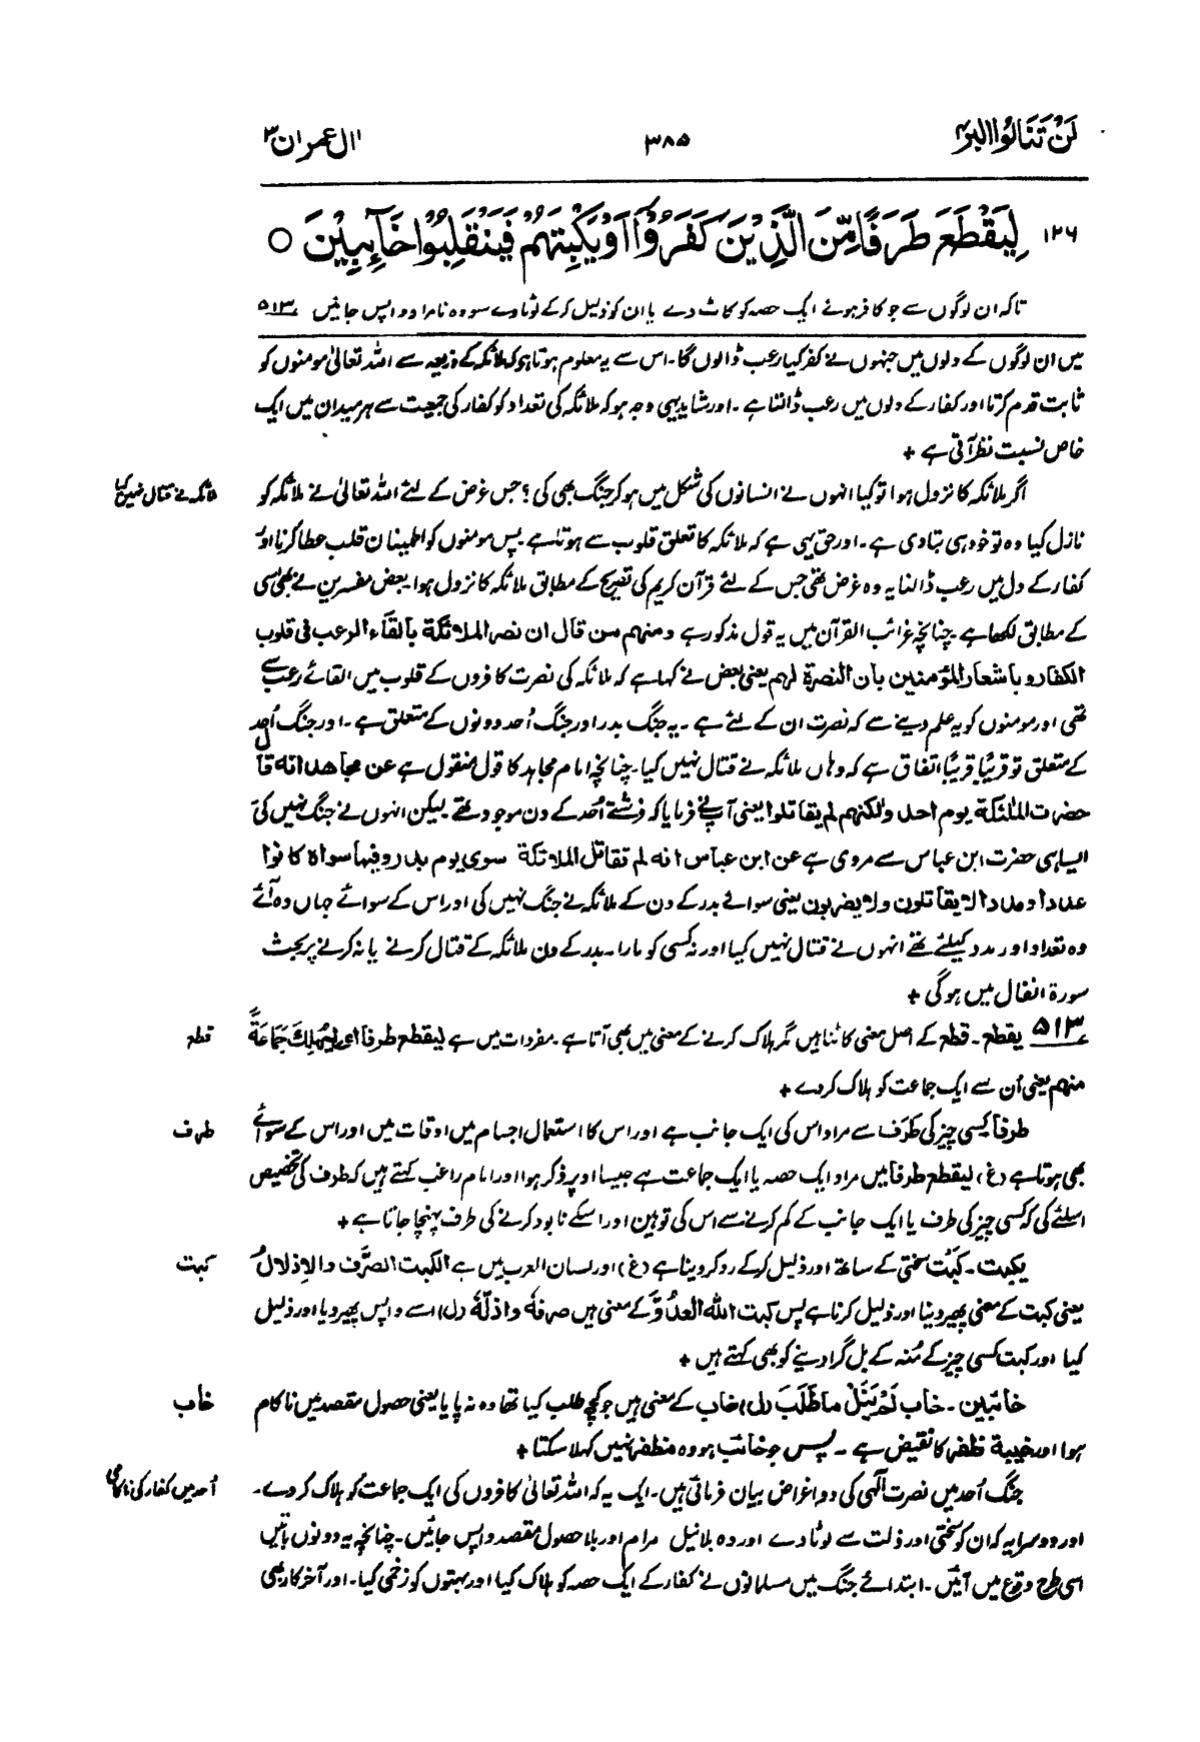 لَنْ تَنَالُوا الْبِرَّ ۳۸۵ اٰل عمران ۳
۱۲۶ لِيَقْطَعَ طَرَفًا مِّنَ الَّذِيْنَ كَفَرُوْۤا اَوْ يَكْبِتَهُمْ فَيَنْقَلِبُوْا خَآىِٕبِيْنَ ○
تاکہ ان لوگوں سے جو کافر ہوئے ایک حصہ کو کاٹ دے یا ان کو ذلیل کرکے لوٹا دے سو وہ نامراد واپس جائیں ۵۱۳
میں ان لوگوں کے دلوں میں جنہوں نے کفر کیا رعب ڈالوں گا۔ اس سے یہ معلوم ہوتا ہو کہ ملائکہ کے ذریعہ سے اللہ تعالیٰ مومنوں کو
ثابت قدم کرتا اور کفار کے دلوں میں رعب ڈالتا ہے۔ اور شاید یہی وجہ ہو کہ ملائکہ کی تعداد کو کفار کی جمعیت سے ہر میدان میں ایک
خاص نسبت نظر آتی ہے +
اگر ملائکہ کا نزول ہوا تو کیا انہوں نے انسانوں کی شکل میں ہو کر جنگ بھی کی؟ جس غرض کے لئے اللہ تعالیٰ نے ملائکہ کو
ملائکہ نے قتال نہیں کیا
نازل کیا وہ تو خود ہی بتا دی ہے۔ اور حق یہی ہے کہ ملائکہ کا تعلق قلوب سے ہوتا ہے پس مومنوں کو اطمینان قلب عطا کرنا اور
کفار کے دل میں رعب ڈالنا یہ وہ غرض تھی جس کے لئے قرآن کریم کی تصریح کے مطابق ملائکہ کا نزول ہوا بعض مفسرین نے بھی اسی
کے مطابق لکھا ہے چنانچہ غرائب القرآن میں یہ قول مذکور ہے ومنہم من قال ان نصر الملائکة بالقآء الرعب فی قلوب
الکفار و باشعار المؤمنین بان النصرة لہم یعنی بعض نے کہا ہے کہ ملائکہ کی نصرت کافروں کے قلوب میں القائے رعب سے
تھی اور مومنوں کو یہ علم دینے سے کہ نصرت ان کے لئے ہے۔ یہ جنگ بدر اور جنگ اُحد دونوں کے متعلق ہے۔ اور جنگ اُحد
کے متعلق تو قریباً قریباً اتفاق ہے کہ وہاں ملائکہ نے قتال نہیں کیا۔ چنانچہ امام مجاہد کا قول منقول ہے عن مجاھد انه قال
حضرت الملٰئکة یوم احد ولکنہم لم یقاتلوا یعنی آپ نے فرمایا کہ فرشتے اُحد کے دن موجود تھے لیکن انہوں نے جنگ نہیں کی
ایسا ہی حضرت ابن عباس سے مروی ہے عن ابن عباس انه لم تقاتل الملائکة سوی یوم بدر و فیما سواہ کانوا
عددا و مددا لا یقاتلون ولا یضربون یعنی سوائے بدر کے دن کے ملائکہ نے جنگ نہیں کی اور اس کے سوائے جہاں وہ آئے
وہ تعداد اور مدد کیلئے تھے انہوں نے قتال نہیں کیا اور نہ کسی کو مارا۔ بدر کے دن ملائکہ کے قتال کرنے یا نہ کرنے پر بحث
سورة انفال میں ہوگی +
۵۱۳ یقطع۔ قطع کے اصل معنی کاٹنا ہیں مگر ہلاک کرنے کے معنی میں بھی آتا ہے۔ مفردات میں ہے لیقطع طرفا ای لِیُھْلِكَ جَمَاعَةً
قطع
منہم یعنی اُن سے ایک جماعت کو ہلاک کر دے +
طرفاً کسی چیز کی طَرَف سے مراد اس کی ایک جانب ہے اور اس کا استعمال اجسام میں اوقات میں اور اس کے سوائے
طرف
بھی ہوتا ہے (غ) لیقطع طرفا میں مراد ایک حصہ یا ایک جماعت ہے جیسا اوپر ذکر ہوا اور امام راغب کہتے ہیں کہ طرف کی تخصیص
اسلئے کی کہ کسی چیز کی طرف یا ایک جانب کے کم کرنے سے اس کی توہین اور اسکے نابود کرنے کی طرف پہنچا جاتا ہے +
یکبت۔ کَبْت سختی کے ساتھ اور ذلیل کرکے رد کر دینا ہے (غ) اور لسان العرب میں ہے الکبت الصَّرْف والاِذلالُ
کبت
یعنی کبت کے معنی پھیر دینا اور ذلیل کرنا ہے پس کبت اللہ العدُوَّ کے معنی ہیں صرفهٗ واذلّهٗ (ل) اسے واپس پھیر دیا اور ذلیل
کیا اور کبت کسی چیز کے مُنہ کے بل گرا دینے کو بھی کہتے ہیں +
خائبین۔ خاب لَمْ یَنَلْ ما طَلَبَ (ل) خاب کے معنی ہیں جو کچھ طلب کیا تھا وہ نہ پایا یعنی حصول مقصد میں ناکام
خاب
ہوا اور خیبة ظفر کا نقیض ہے۔ پس جو خائب ہو وہ مظفر نہیں کہلا سکتا +
جنگ اُحد میں نصرت الٰہی کی دو اغراض بیان فرمائی ہیں۔ ایک یہ کہ اللہ تعالیٰ کافروں کی ایک جماعت کو ہلاک کر دے۔
اُحد میں کفار کی ناکامی
اور دوسرا یہ کہ ان کو سختی اور ذلت سے لوٹا دے اور وہ بلا نیل مرام اور بلا حصول مقصد واپس جائیں۔ چنانچہ یہ دونوں باتیں
اسی طرح وقوع میں آئیں۔ ابتدائے جنگ میں مسلمانوں نے کفار کے ایک حصہ کو ہلاک کیا اور بہتوں کو زخمی کیا۔ اور آخر کار بھی